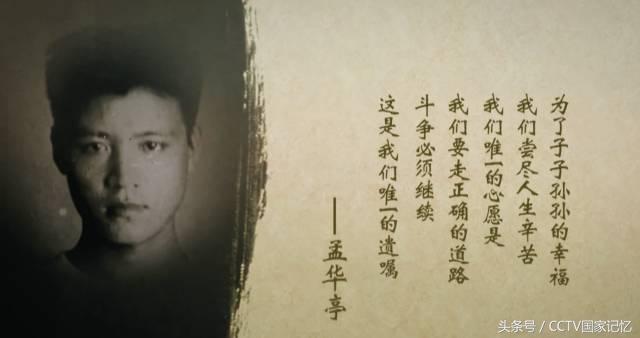 为了子子孙孙的幸福
我们尝尽人生辛苦
我们唯一的心愿是
我们要走正确的道路
斗争必须继续
这是我们唯一的遗嘱
——孟华亭
头条号／CCTV国家记忆